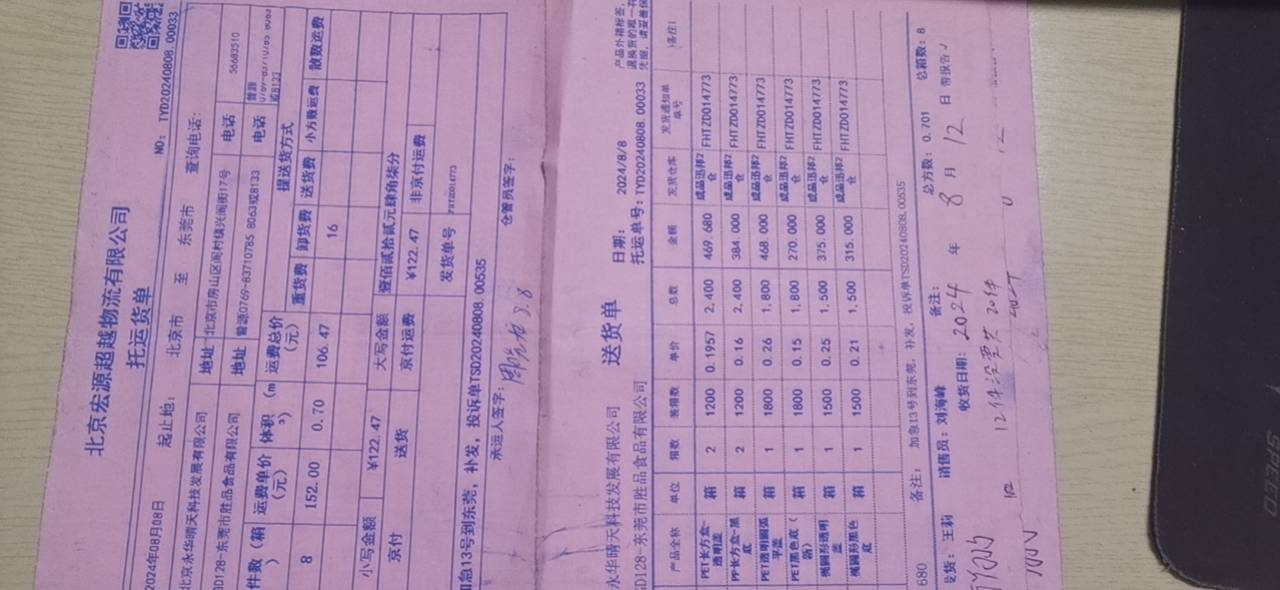 北京宏源超越物流有限公司
托运货单
NO: TYD20240808.00033
2024年08月08日 起止地: 北京市 至 东莞市 查询电话:
北京永华晴天科技发展有限公司 地址 北京市房山区阎村镇兴阎街17号 电话 56683510
GD128-东莞市胜品食品有限公司 地址 曾源0769-83710785 8063或8133 电话
件数(箱) 运费单价(元) 体积(m3) 运费总价(元) 重货费 卸货费 送货费 小方数运费 散数运费
提送货方式
8 152.00 0.70 106.47 16
小写金额 ¥122.47 大写金额 壹佰贰拾贰元肆角柒分
京付 送货 京付运费 ¥122.47 非京付运费
发货单号 FHTZD014773
加急13号到东莞, 补发, 投诉单TSD20240808.00535
承运人签字: 3.8 仓管员签字:
送货单
永华晴天科技发展有限公司 日期: 2024/8/8
GD128-东莞市胜品食品有限公司 托运单号: TYD20240808.00033
产品外箱标签,
退换货的唯一有
凭据, 请妥善保
产品全称 单位 箱数 装箱数 单价 总数 金额 发货仓库 发货通知单单号 备注1
PET长方盒-透明盖 箱 2 1200 0.1957 2,400 469.680 成品迅邦2仓 FHTZD014773
PP长方盒-黑底 箱 2 1200 0.16 2,400 384.000 成品迅邦2仓 FHTZD014773
PET透明圆弧平盖 箱 1 1800 0.26 1,800 468.000 成品迅邦2仓 FHTZD014773
PET黑色底( 箱 1 1800 0.15 1,800 270.000 成品迅邦2仓 FHTZD014773
椭圆形透明盖 箱 1 1500 0.25 1,500 375.000 成品迅邦2仓 FHTZD014773
椭圆形黑色底 箱 1 1500 0.21 1,500 315.000 成品迅邦2仓 FHTZD014773
680 备注: 加急13号到东莞, 补发, 投诉单TSD20240808.00535 总方数: 0.701 总箱数: 8
发货: 王莉 销售员: 刘海峰 备注: 带报告√
收货日期: 2024 年 8 月 12 日